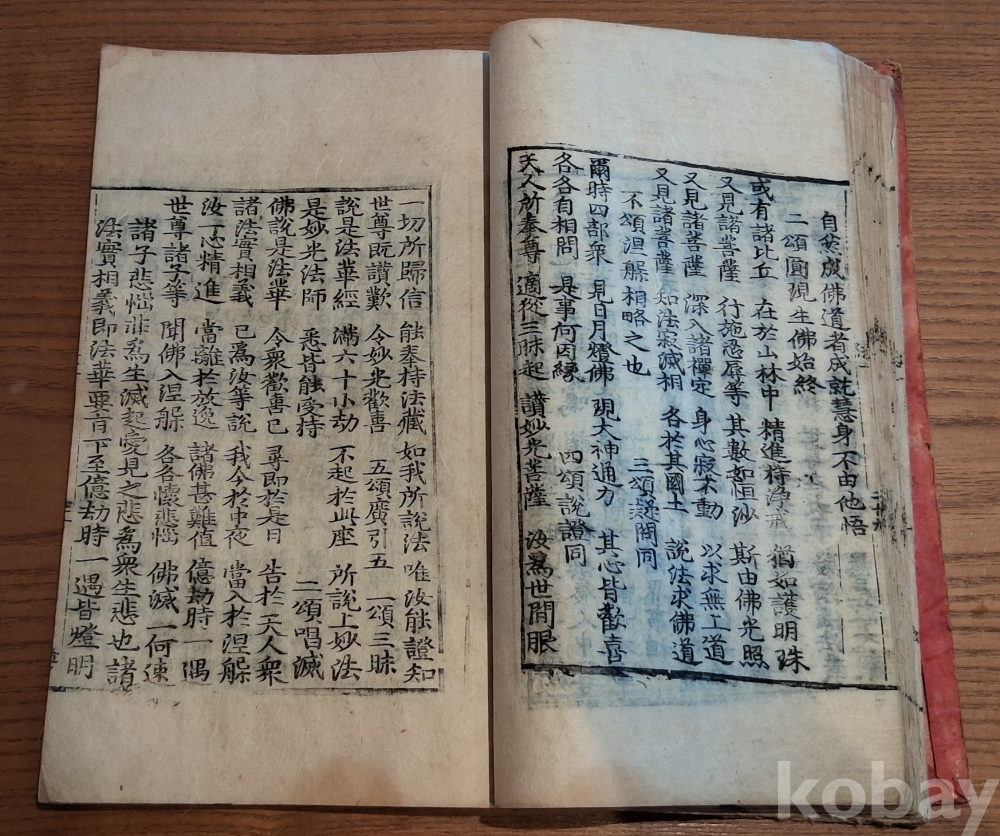 自然成佛道者成就慧身不由他悟
二頌圓現生佛始終
或有諸比丘 在於山林中 精進持淨戒 猶如護明珠
又見諸菩薩 行施忍辱等 其數如恒沙 斯由佛光照
又見諸菩薩 深入諸禪定 身心寂不動 以求無上道
又見諸菩薩 知法寂滅相 各於其國土 說法求佛道
不頌涅槃相略之也 三頌疑問同
爾時四部衆 見日月燈佛 現大神通力 其心皆歡喜
各各自相問 是事何因緣 四頌說證同
天人所奉尊 適從三昧起 讃妙光菩薩 汝爲世間眼
一切所歸信 能奉持法藏 如我所說法 唯汝能證知
世尊既讃歎 令妙光歡喜 五頌廣引五 一頌三昧
說是法華經 滿六十小劫 不起於此座 所說上妙法
是妙光法師 悉皆能受持 二頌唱滅
佛說是法華 令衆歡喜已 尋即於是日 告於天人衆
諸法實相義 已爲汝等說 我今於中夜 當入於涅槃
汝一心精進 當離於放逸 諸佛甚難值 億劫時一遇
世尊諸子等 聞佛入涅槃 各各懷悲惱 佛滅一何速
諸子悲惱非爲生滅起愛見之悲爲衆生悲也諸
法實相義即法華要旨下至億劫時一遇皆燈明
kobay